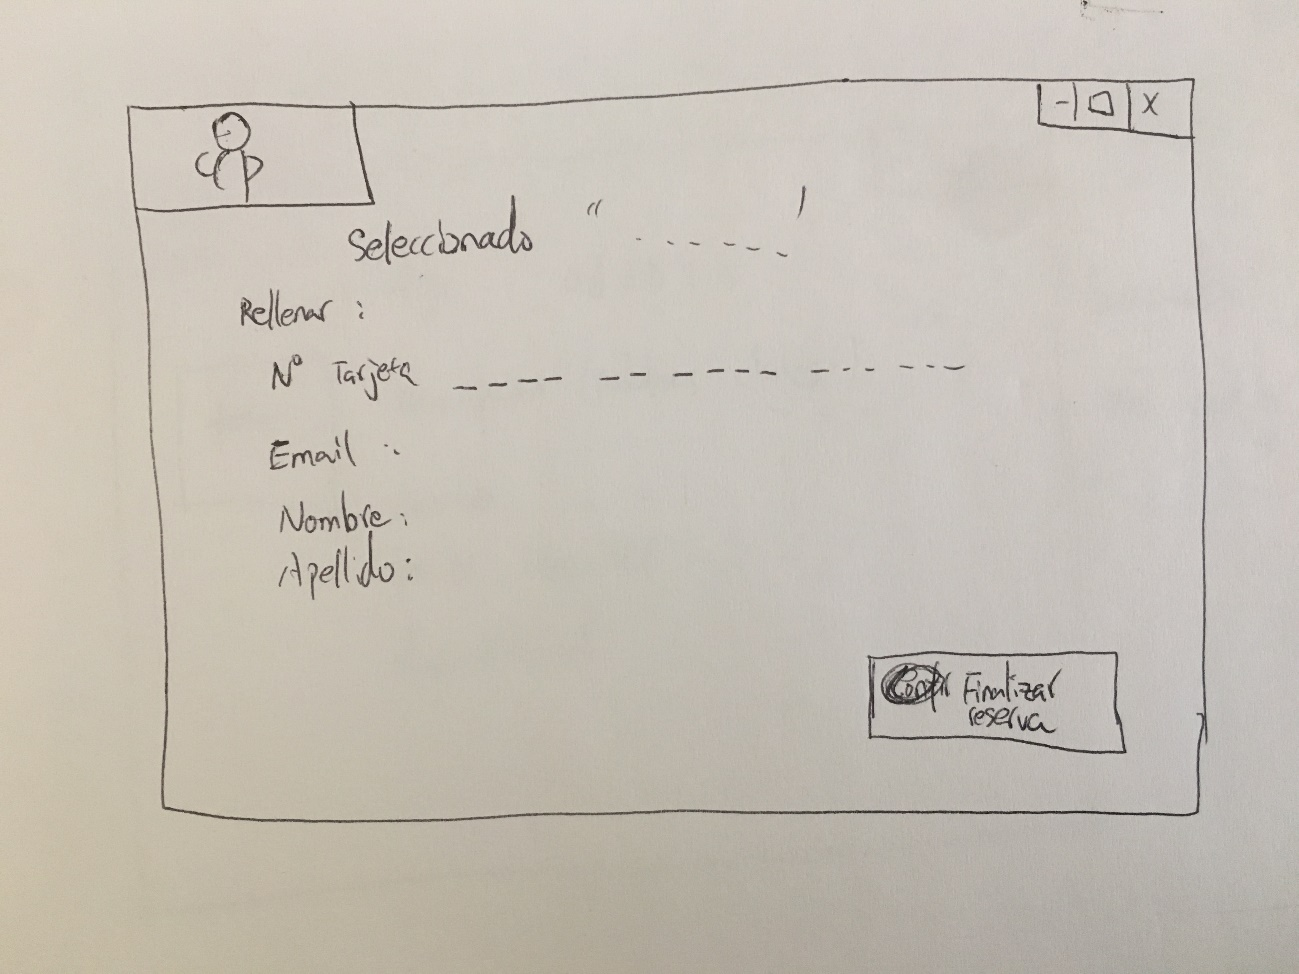 - □ X
Seleccionado " - - - - - - '
Rellenar :
Nº Tarjeta _ _ _ _ _ _ _ _ _ _ _ _ _ _ _
Email :
Nombre:
Apellido:
Finalizar
reserva